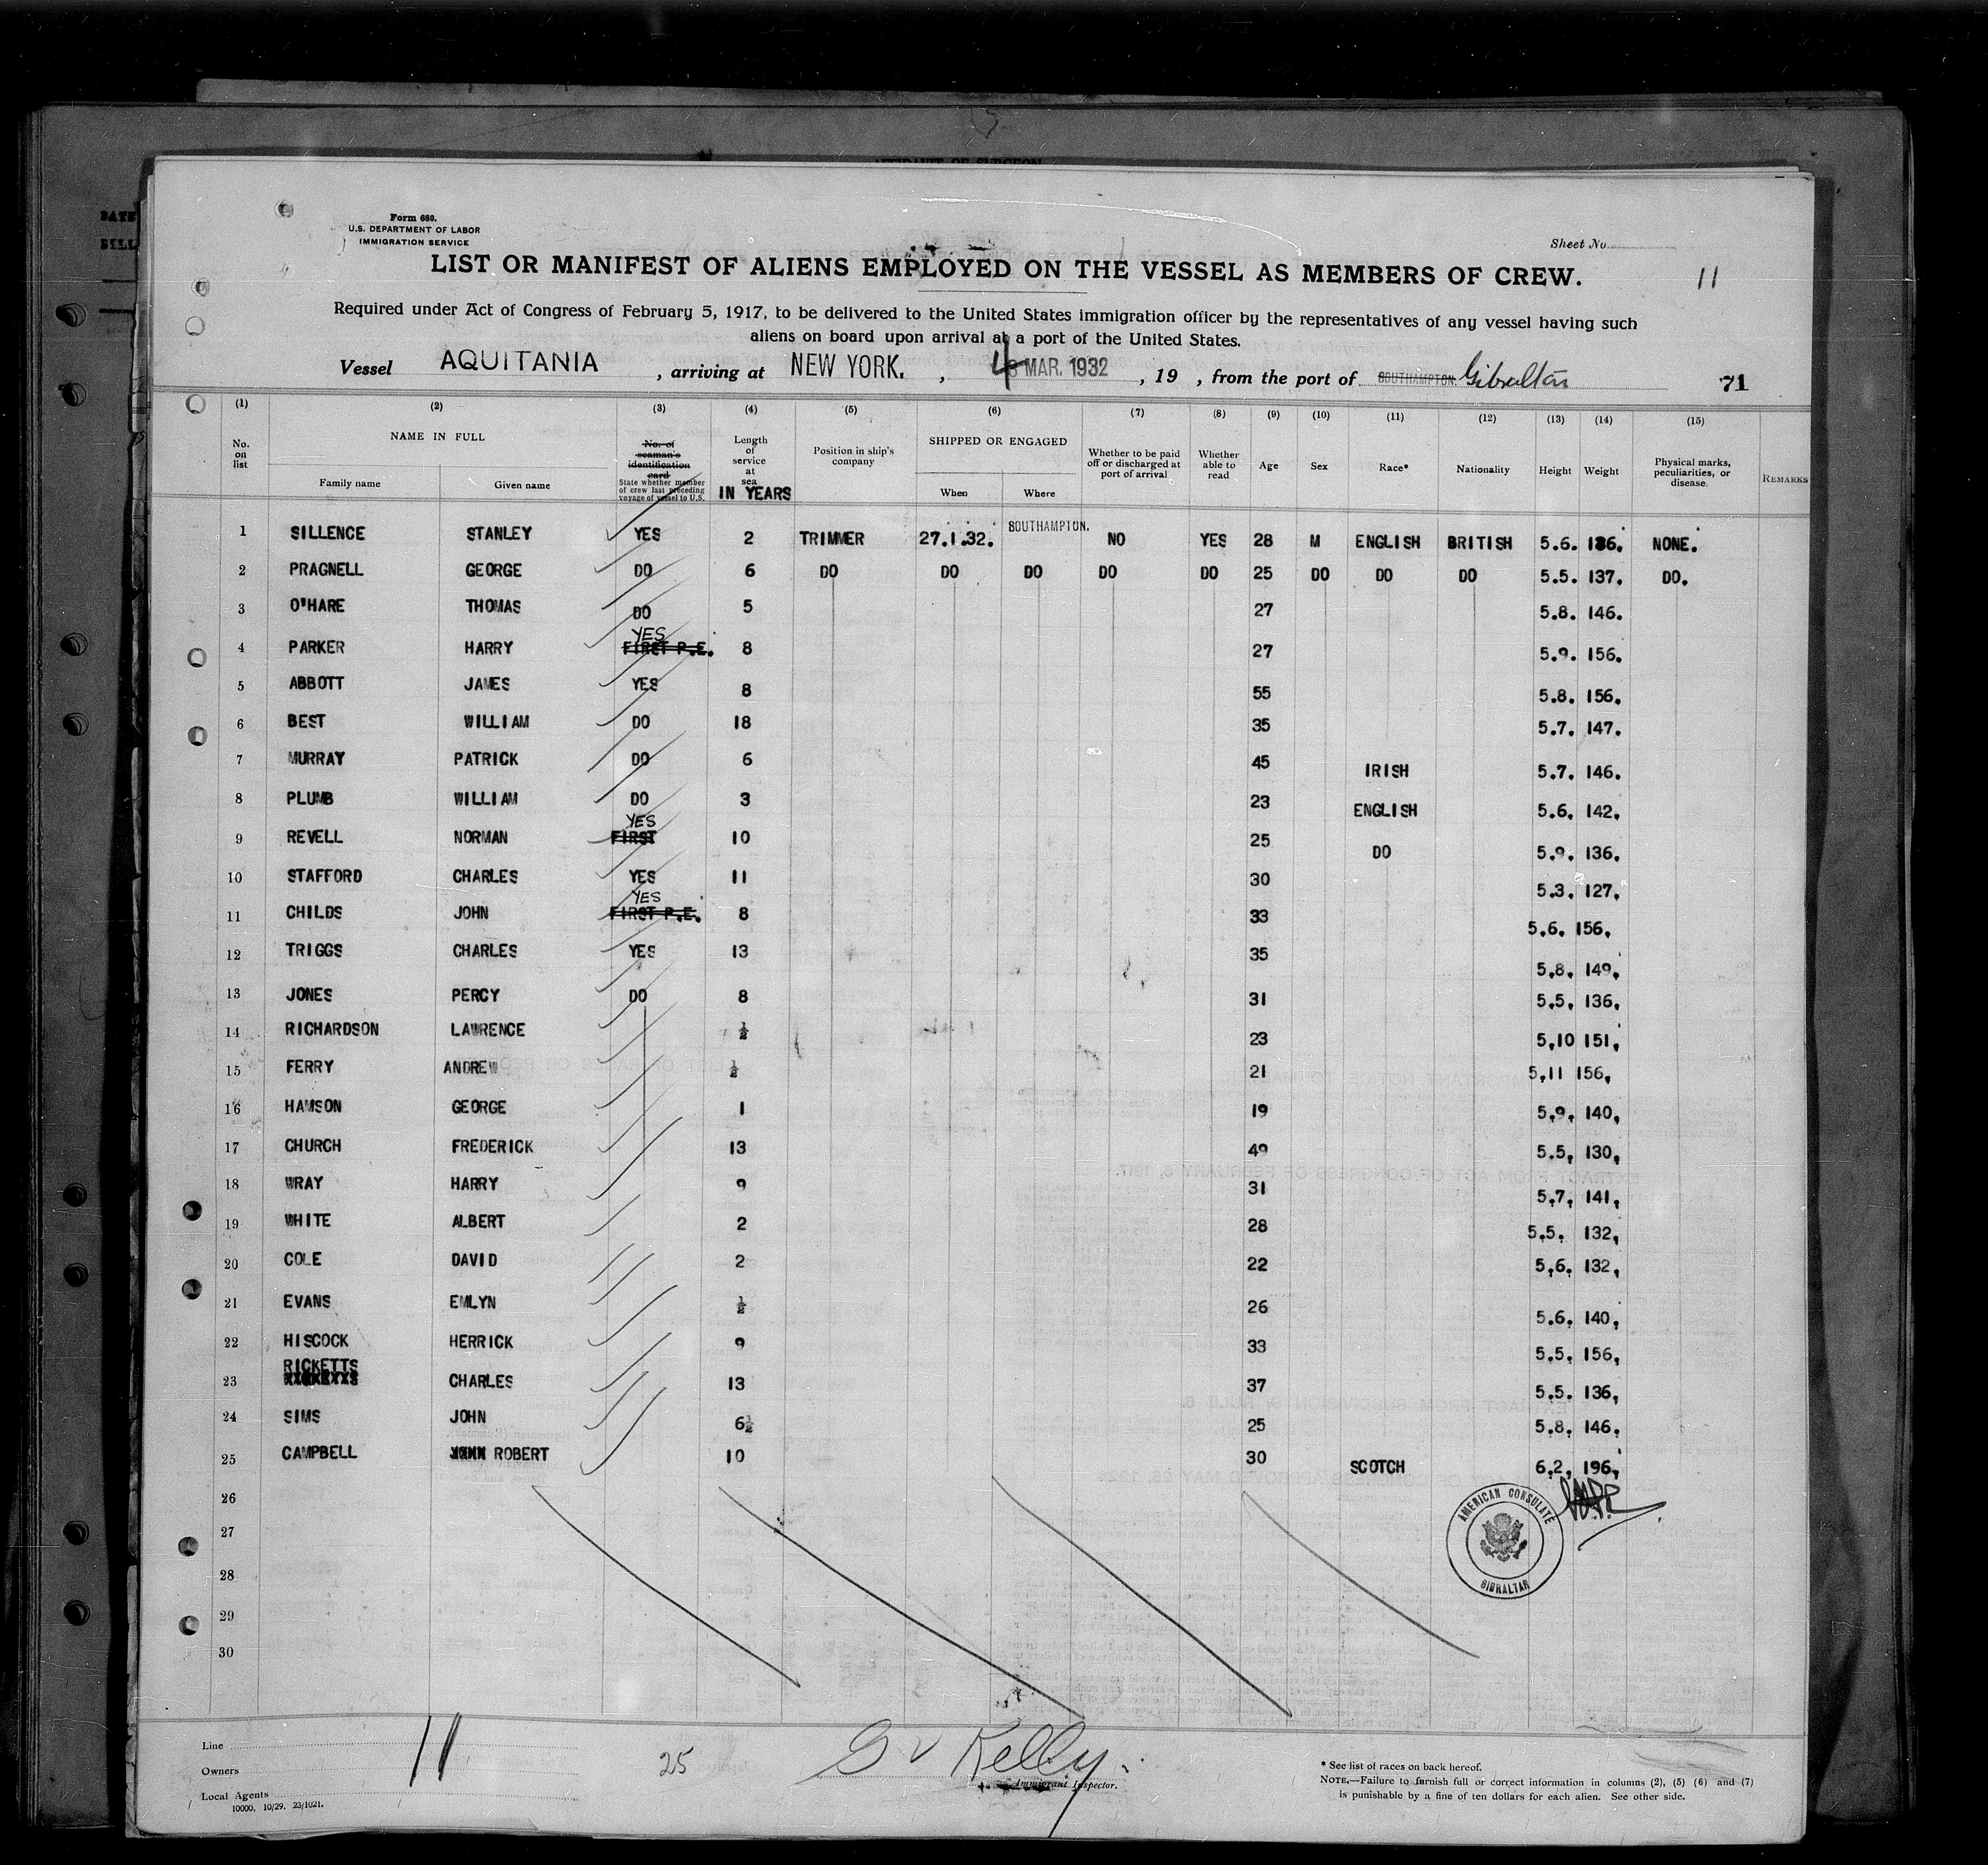 Form 680.
U.S. DEPARTMENT OF LABOR
IMMIGRATION SERVICE
Sheet No.
LIST OR MANIFEST OF ALIENS EMPLOYED ON THE VESSEL AS MEMBERS OF CREW.
11
Required under Act of Congress of February 5, 1917, to be delivered to the United States immigration officer by the representatives of any vessel having such
aliens on board upon arrival at a port of the United States.
Vessel AQUITANIA , arriving at NEW YORK. , 4 MAR. 1932 , 19 , from the port of SOUTHAMPTON. Gibraltar 71
(1) (2) (3) (4) (5) (6) (7) (8) (9) (10) (11) (12) (13) (14) (15)
No. on list
NAME IN FULL
Family name Given name
No. of seaman's identification card
State whether member of crew last preceding voyage of vessel to U.S.
Length of service at sea IN YEARS
Position in ship's company
SHIPPED OR ENGAGED
When Where
Whether to be paid off or discharged at port of arrival
Whether able to read
Age Sex Race* Nationality Height Weight
Physical marks, peculiarities, or disease.
REMARKS
1 SILLENCE STANLEY YES 2 TRIMMER 27.1.32. SOUTHAMPTON. NO YES 28 M ENGLISH BRITISH 5.6. 136. NONE.
2 PRAGNELL GEORGE DO 6 DO DO DO DO DO 25 DO DO DO 5.5. 137. DO.
3 O'HARE THOMAS DO 5 27 5.8. 146.
4 PARKER HARRY YES FIRST P.E. 8 27 5.9. 156.
5 ABBOTT JAMES YES 8 55 5.8. 156.
6 BEST WILLIAM DO 18 35 5.7. 147.
7 MURRAY PATRICK DO 6 45 IRISH 5.7. 146.
8 PLUMB WILLIAM DO 3 23 ENGLISH 5.6. 142.
9 REVELL NORMAN YES FIRST 10 25 DO 5.9. 136.
10 STAFFORD CHARLES YES 11 30 5.3. 127.
11 CHILDS JOHN YES FIRST P.E. 8 33 5.6. 156.
12 TRIGGS CHARLES YES 13 35 5.8. 149.
13 JONES PERCY DO 8 31 5.5. 136.
14 RICHARDSON LAWRENCE ½ 23 5.10 151.
15 FERRY ANDREW ½ 21 5.11 156.
16 HAMSON GEORGE 1 19 5.9. 140.
17 CHURCH FREDERICK 13 49 5.5. 130.
18 WRAY HARRY 9 31 5.7. 141.
19 WHITE ALBERT 2 28 5.5. 132.
20 COLE DAVID 2 22 5.6. 132.
21 EVANS EMLYN ½ 26 5.6. 140.
22 HISCOCK HERRICK 9 33 5.5. 156.
23 RICKETTS CHARLES 13 37 5.5. 136.
24 SIMS JOHN 6½ 25 5.8. 146.
25 CAMPBELL JOHN ROBERT 10 30 SCOTCH 6.2. 196.
26
27
28
29
30
AMERICAN CONSULATE
GIBRALTAR
Line
Owners
Local Agents
10000. 10/29. 23/1021.
11
25
G V Kelly.
Immigrant Inspector.
* See list of races on back hereof.
NOTE.—Failure to furnish full or correct information in columns (2), (5) (6) and (7)
is punishable by a fine of ten dollars for each alien. See other side.